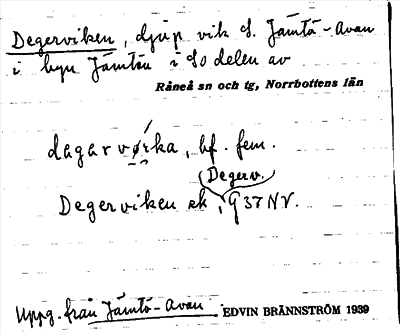 Degerviken, djup vik S. Jämtö-Avan
i byn Jämtön i SO delen av
Råneå sn och tg, Norrbottens län
dagarvø̞rka, bf. fem.
(Degerv.)
Degerviken ek i G 37 NV.
Uppg. från Jämtö-Avan
EDVIN BRÄNNSTRÖM 1939